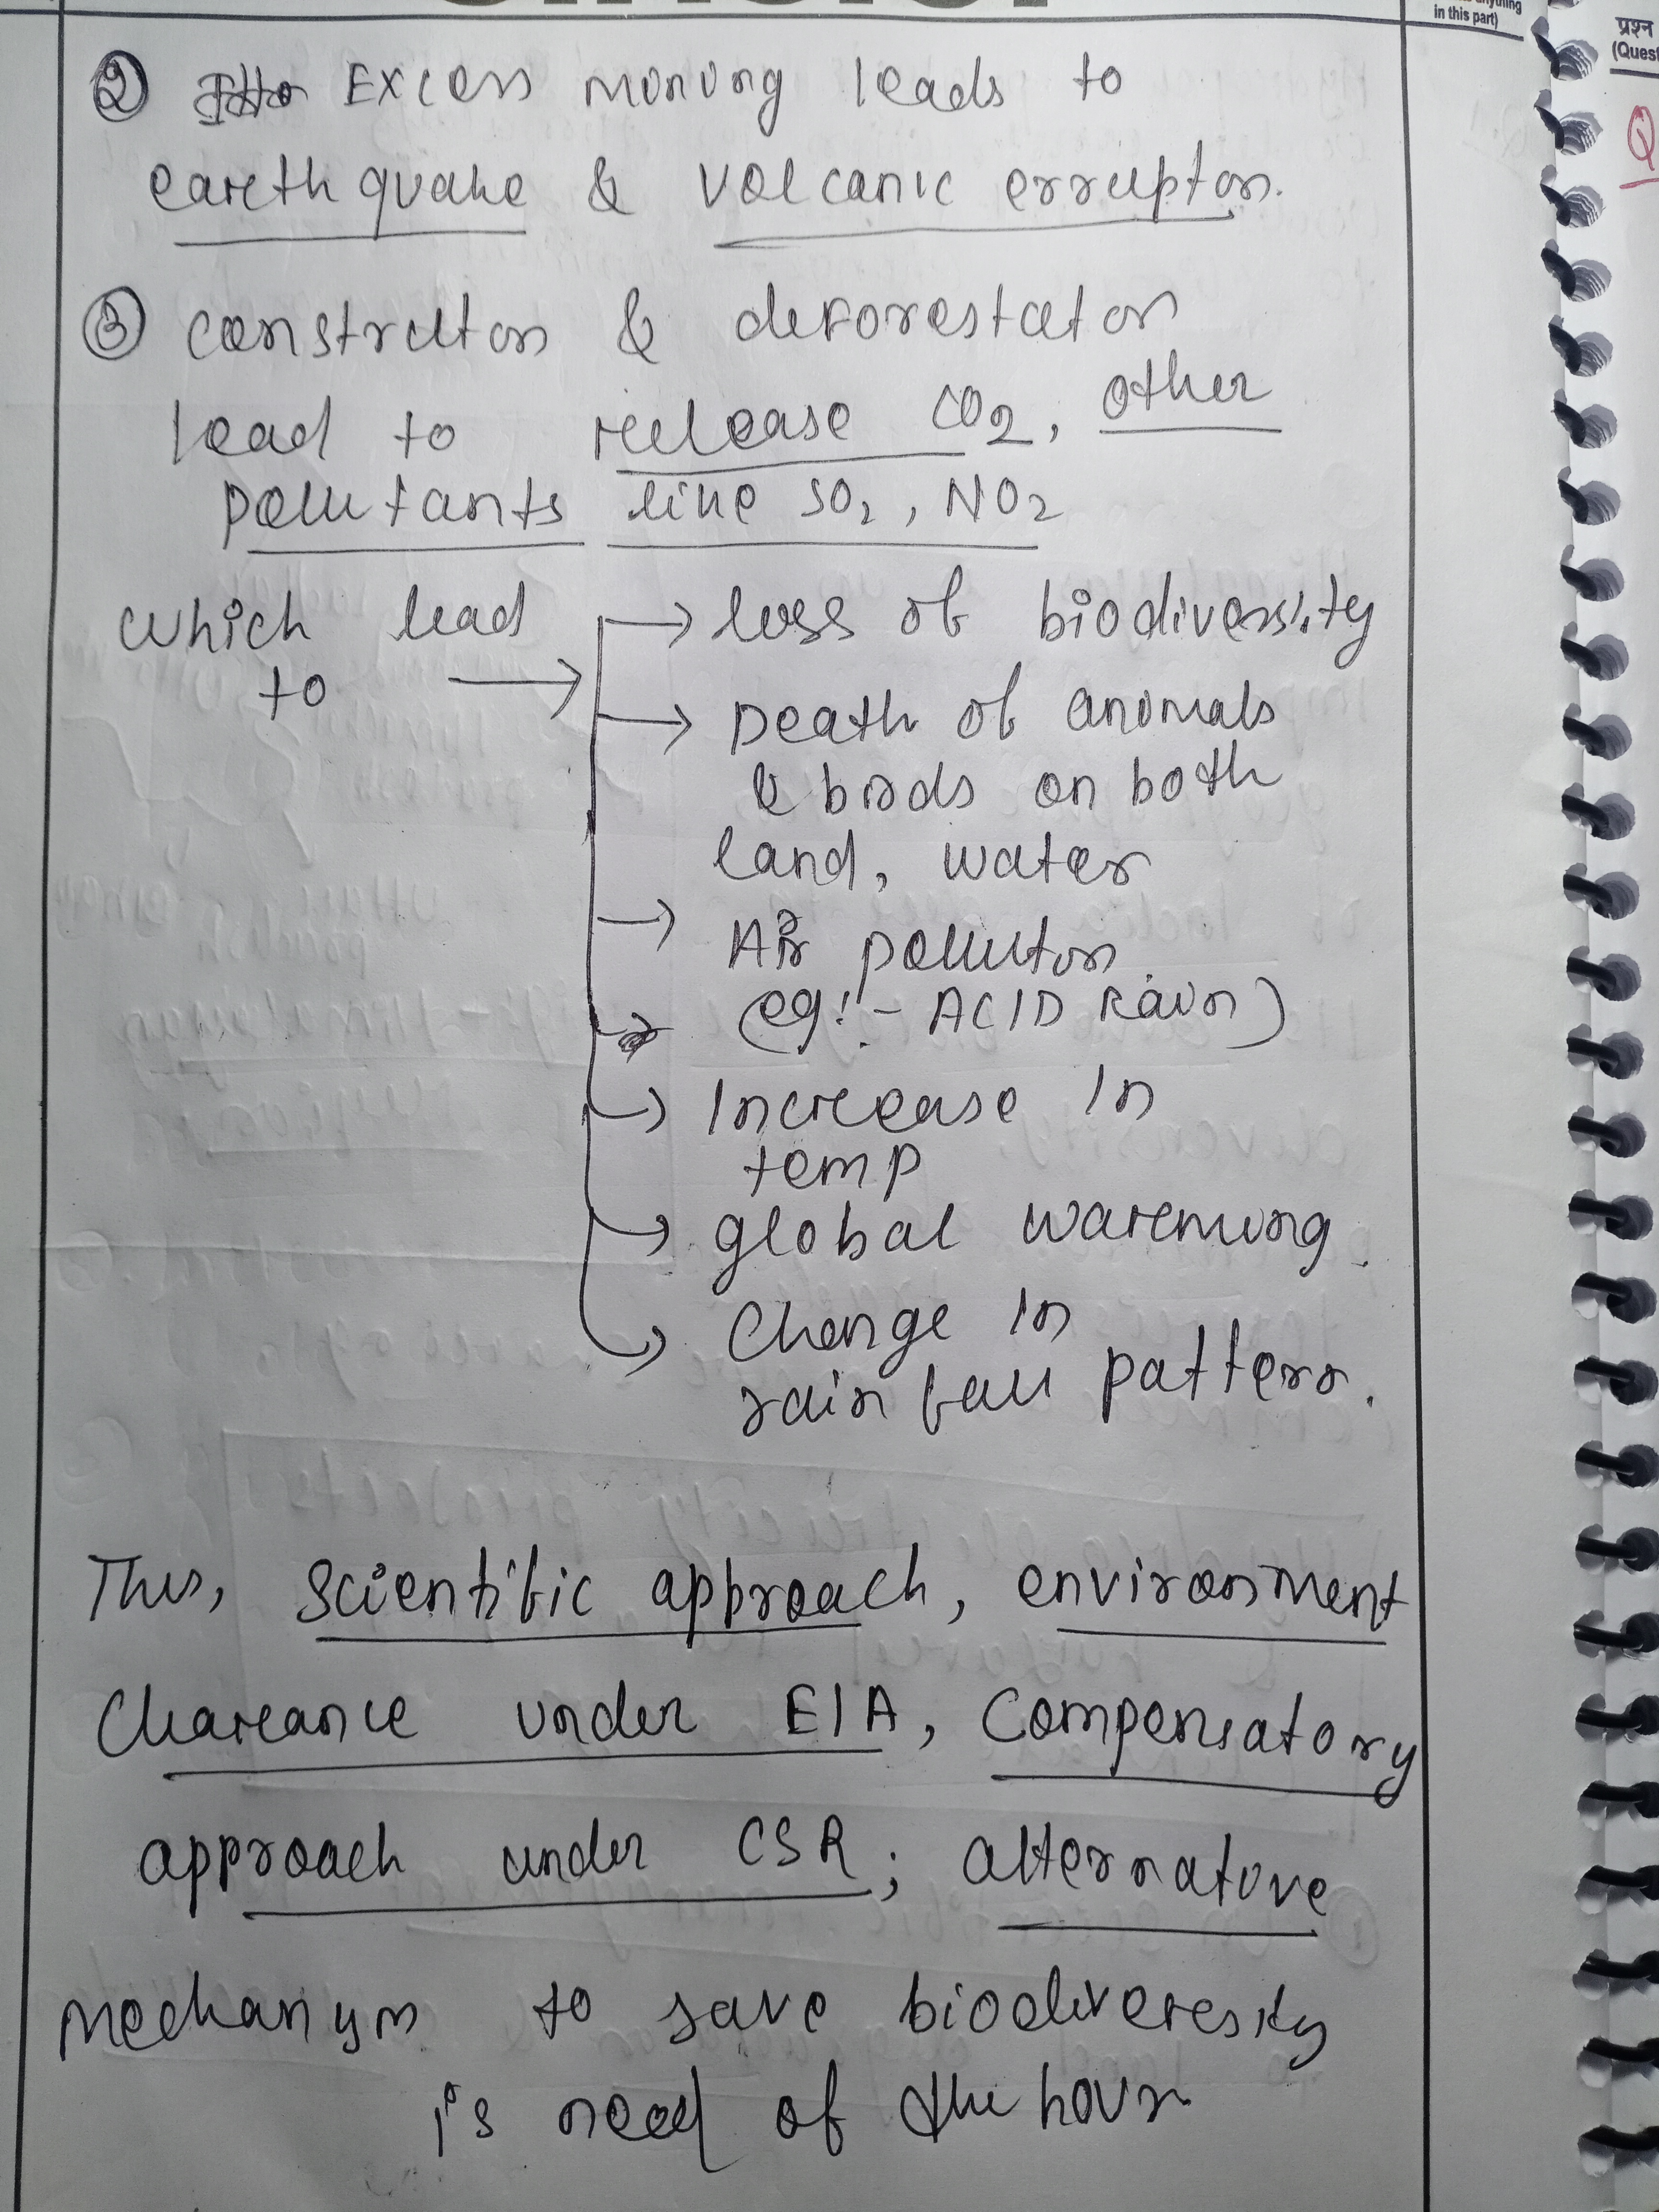 in this part)
प्रश्न
(Quest
Q
② Excess mining leads to
earthquake & volcanic erruption.
③ construction & deforestation
lead to release CO2, other
pollutants like SO2, NO2
which lead to → → loss of biodiversity
→ Death of animals
& birds on both
land, water
→ Air pollution
(eg:- ACID Rain)
→ Increase in
temp
→ global warming.
→ Change in
rain fall pattern.
Thus, scientific approach, environment
Clareance under EIA, Compensatory
approach under CSR; alternative
mechanism to save biodiveresity
is need of the hour